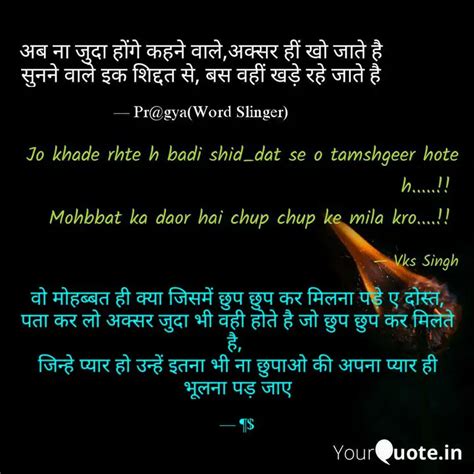 अब ना जुदा होंगे कहने वाले,अक्सर हीं खो जाते है
सुनने वाले इक शिद्दत से, बस वहीं खड़े रहे जाते है
— Pr@gya(Word Slinger)
Jo khade rhte h badi shid_dat se o tamshgeer hote
h.....!!
Mohbbat ka daor hai chup chup ke mila kro....!!
— Vks Singh
वो मोहब्बत ही क्या जिसमें छुप छुप कर मिलना पड़े ए दोस्त,
पता कर लो अक्सर जुदा भी वही होते है जो छुप छुप कर मिलते
है,
जिन्हे प्यार हो उन्हें इतना भी ना छुपाओ की अपना प्यार ही
भूलना पड़ जाए
— ¶$
YourQuote.in